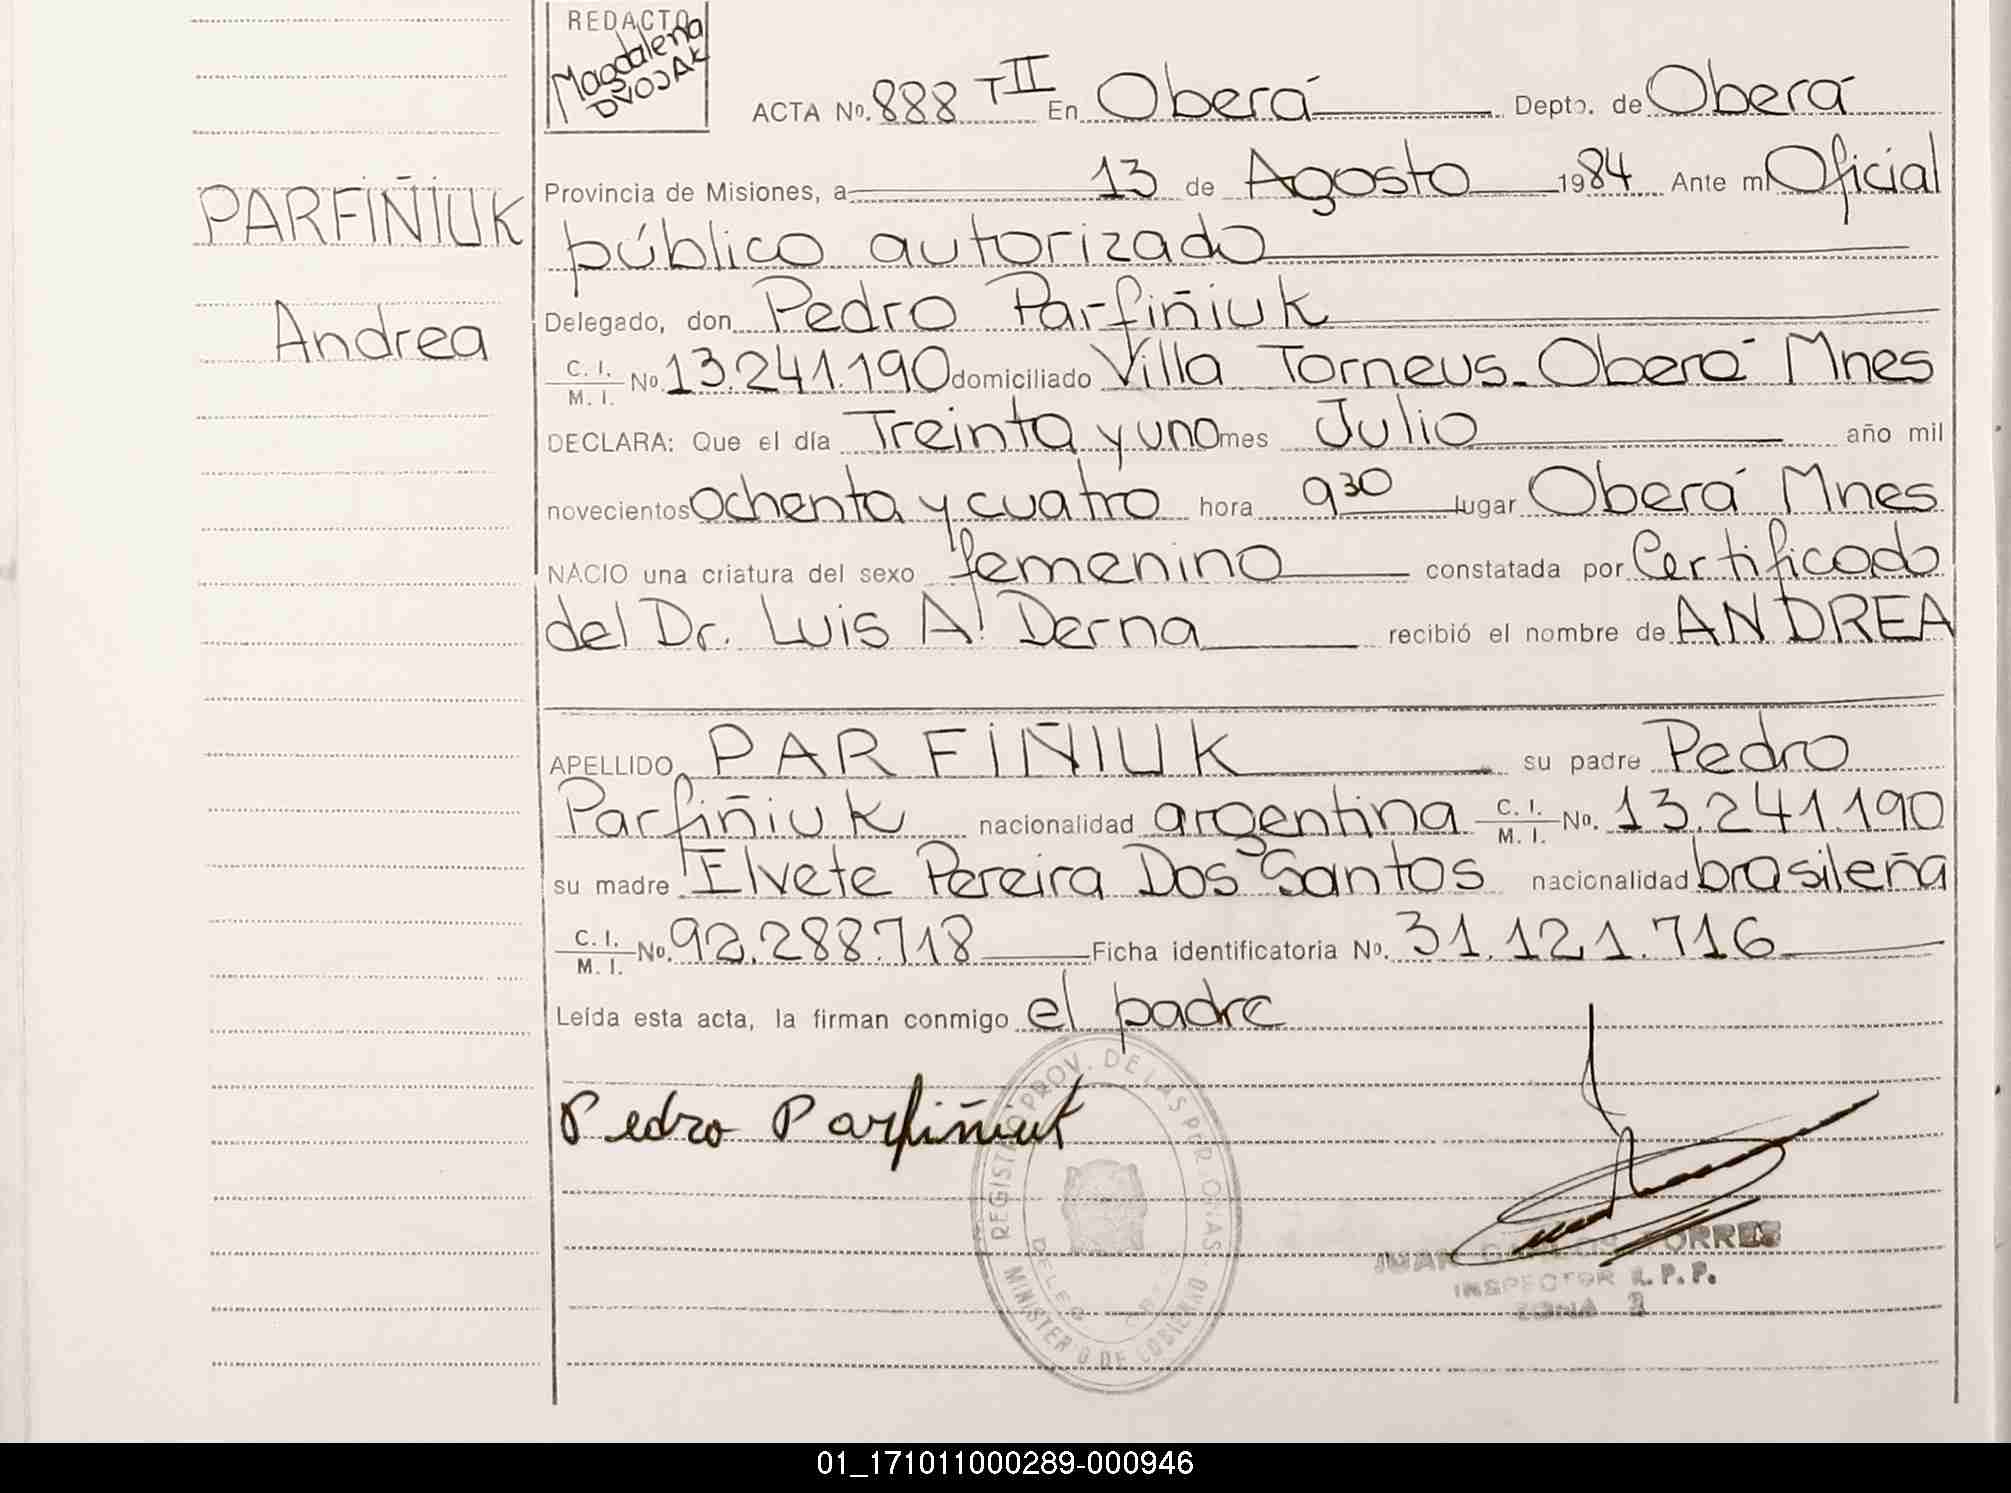 REDACTO
Magdalena
DVOJAK
ACTA No. 888 TII En Oberá Depto. de Oberá
PARFIÑIUK
Provincia de Misiones, a 13 de Agosto 1984 Ante mí Oficial
público autorizado
Andrea
Delegado, don Pedro Parfiñiuk
C. I. / M. I. No. 13.241.190 domiciliado Villa Torneus - Oberá Mnes
DECLARA: Que el día Treinta y uno mes Julio año mil
novecientos Ochenta y cuatro hora 9 30 lugar Oberá Mnes
NACIO una criatura del sexo femenino constatada por Certificado
del Dr. Luis A. Derna recibió el nombre de ANDREA
APELLIDO PARFIÑIUK su padre Pedro
Parfiñiuk nacionalidad argentina C. I. / M. I. No. 13.241.190
su madre Elvete Pereira Dos Santos nacionalidad brasileña
C. I. / M. I. No. 92.288.718 Ficha identificatoria No. 31.121.716
Leída esta acta, la firman conmigo el padre
Pedro Parfiñiuk
REGISTRO PROV. DE LAS PERSONAS
MINISTERIO DE GOBIERNO
JUAN CARLOS TORRES
INSPECTOR R. P. P.
ZONA 3
01_171011000289-000946